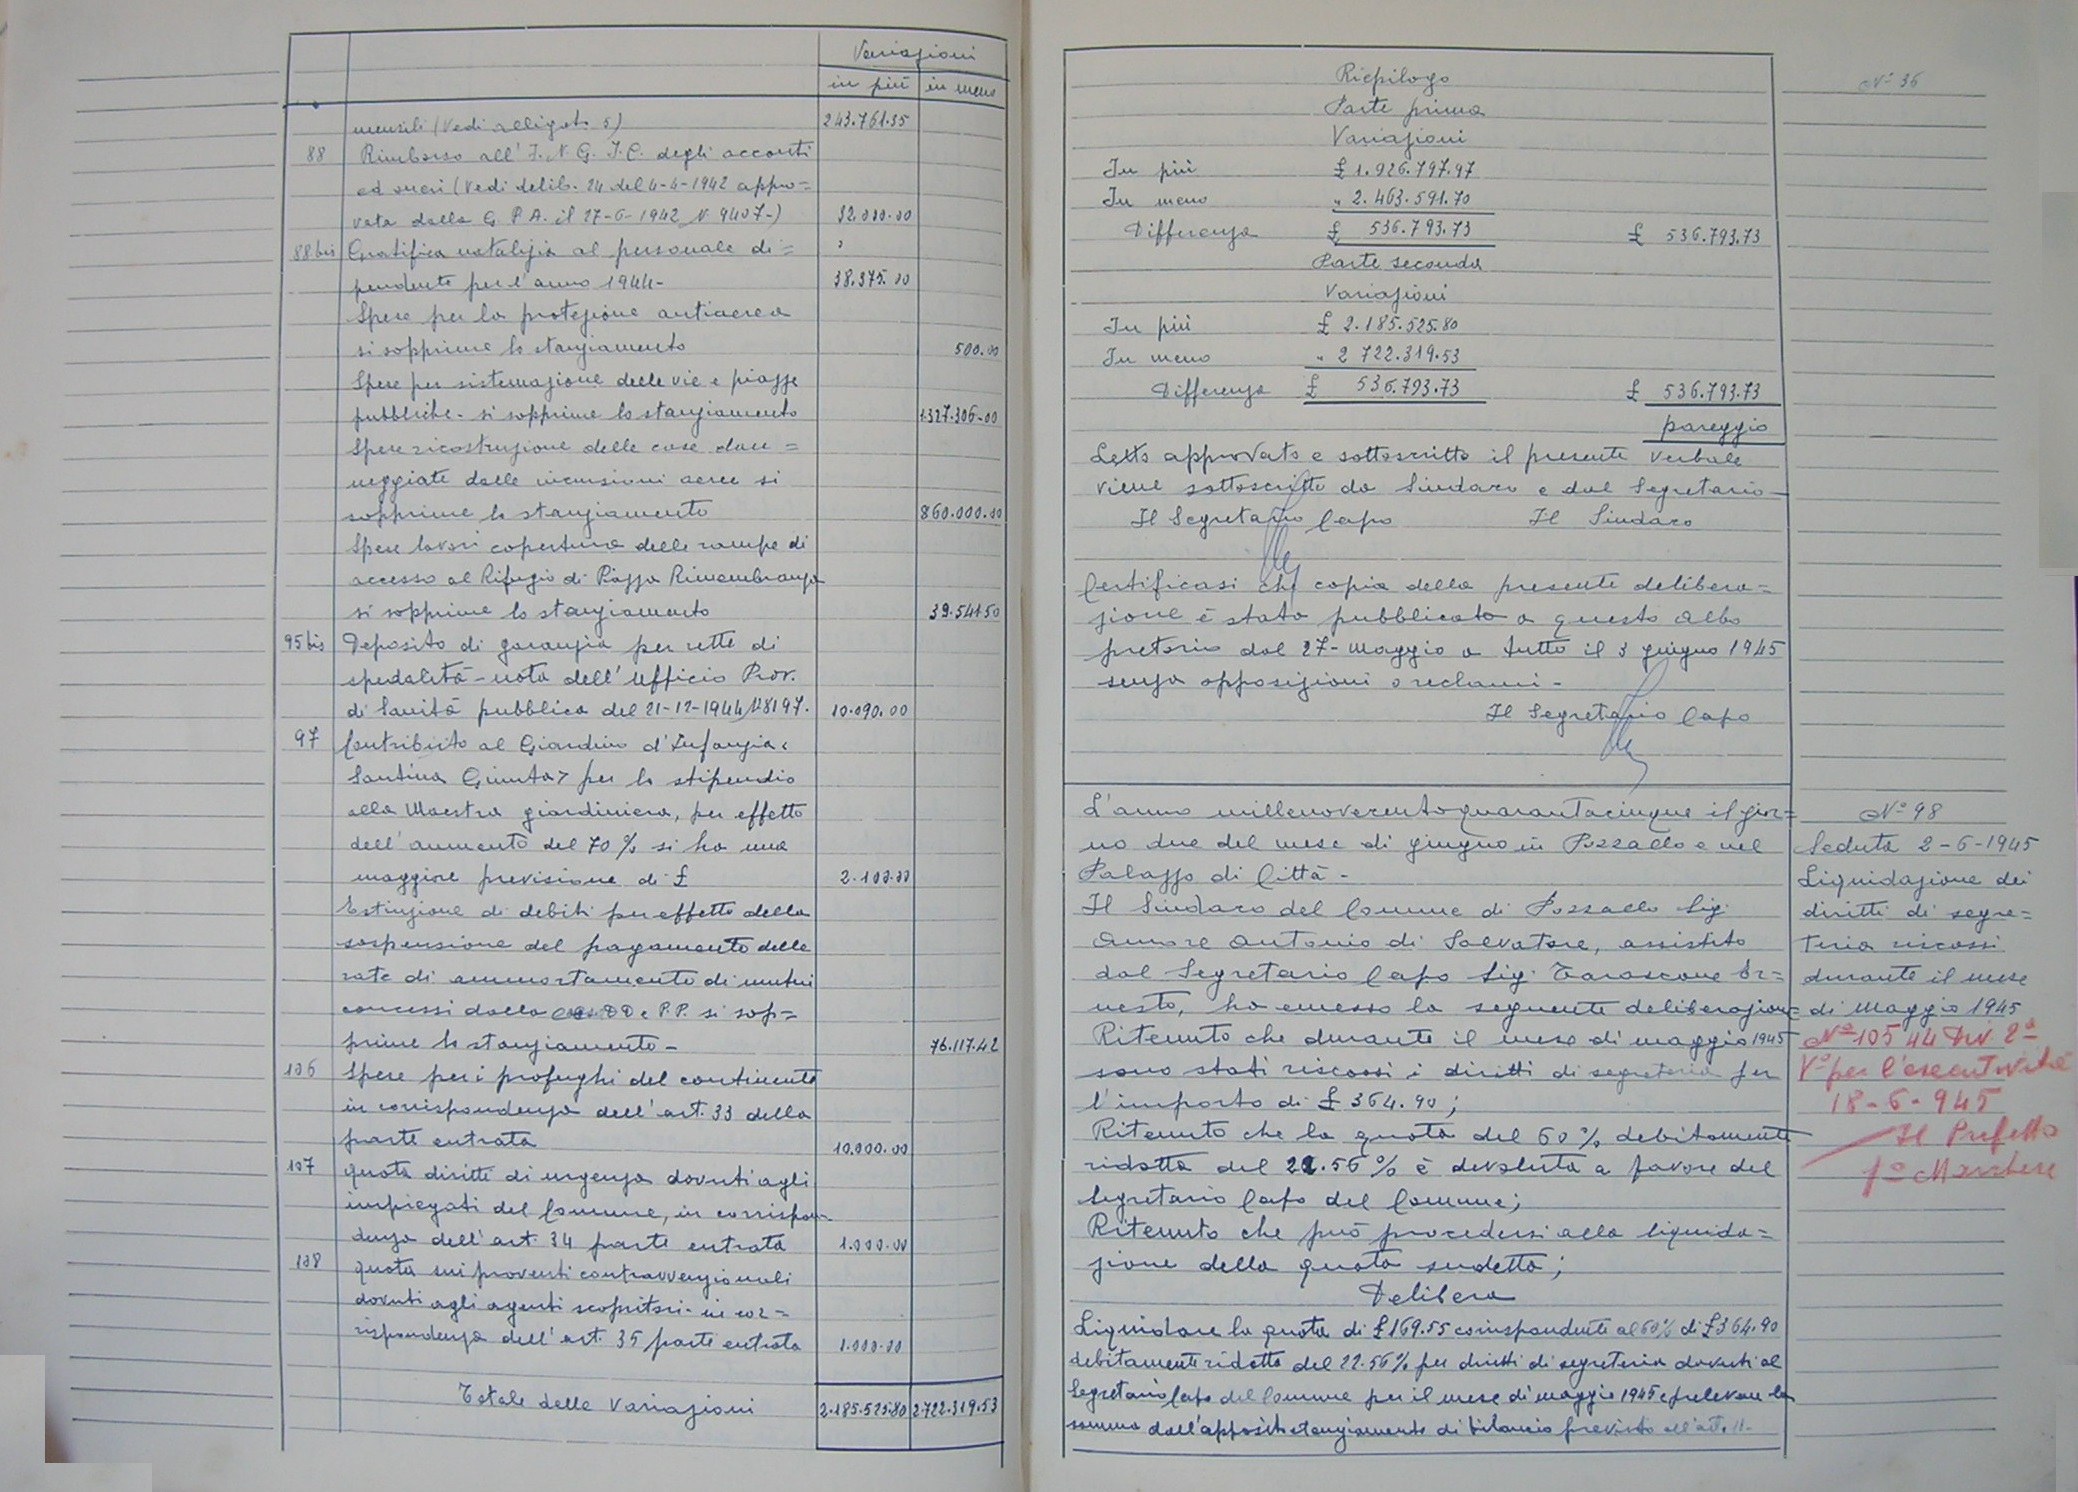 Variazioni
in più in meno
mensili (Vedi allegato 5) 243.761.35
88 Rimborso all'I.N.G.I.C. degli acconti
ed oneri (Vedi delib. 24 del 4-4-1942 appro=
vata dalla G.P.A. il 27-6-1942 N. 9407-) 32.000.00
88 bis Gratifica natalizia al personale di=
pendente per l'anno 1944- 38.375.00
Spese per la protezione antiaerea
si sopprime lo stanziamento 500.00
Spese per sistemazione delle vie e piazze
pubbliche- si sopprime lo stanziamento 1327.306-00
Spese ricostruzione delle case dan=
neggiate dalle incursioni aeree si
sopprime lo stanziamento 860.000.00
Spese lavori copertura delle rampe di
accesso al Rifugio di Piazza Rimembranza
si sopprime lo stanziamento 39.541.50
95 bis Deposito di garanzia per rette di
spedalità - nota dell'Ufficio Prov.
di Sanità pubblica del 21-12-1944 N. 8197. 10.090.00
97 Contributo al Giardino d'Infanzia <
Santina Giunta> per lo stipendio
alla Maestra giardiniera, per effetto
dell'aumento del 70% si ha una
maggiore previsione di £ 2.100.00
Estinzione di debiti per effetto della
sospensione del pagamento delle
rate di ammortamento di mutui
concessi dalla DD e P.P. si sop=
prime lo stanziamento - 76.117.42
106 Spese per i profughi del continente
in corrispondenza dell'art. 33 della
parte entrata 10.000.00
107 quota diritti di urgenza dovuti agli
impiegati del Comune, in corrispon-
denza dell'art. 34 parte entrata 1.000.00
108 quota sui proventi contravvenzionali
dovuti agli agenti scopritori- in cor=
rispondenza dell'art. 35 parte entrata 1.000.00
Totale delle Variazioni 2.185.525.80 2.722.319.53
N° 36
Riepilogo
Parte prima
Variazioni
In più £ 1.926.797.97
In meno " 2.463.591.70
Differenza £ 536.793.73 £ 536.793.73
Parte seconda
Variazioni
In più £ 2.185.525.80
In meno " 2 722.319.53
Differenza £ 536.793.73 £ 536.793.73
pareggio
Letto approvato e sottoscritto il presente verbale
viene sottoscritto da Sindaco e dal Segretario-
Il Segretario Capo Il Sindaco
Certificasi che copia della presente delibera=
zione è stata pubblicata a questo Albo
pretorio dal 27- Maggio a tutto il 3 giugno 1945
senza opposizioni o reclami -
Il Segretario Capo
L'anno millenovecentoquarantacinque il gior=
no due del mese di giugno in Pozzallo e nel
Palazzo di Città -
Il Sindaco del Comune di Pozzallo Sig.
Amore Antonio di Salvatore, assistito
dal Segretario Capo Sig. Tarascone Er=
nesto, ha emesso la seguente deliberazione
Ritenuto che durante il mese di maggio 1945
sono stati riscossi i diritti di segreteria per
l'importo di £ 364.90;
Ritenuto che la quota del 60% debitamente
ridotta del 22.56% è devoluta a favore del
Segretario Capo del Comune;
Ritenuto che può procedersi alla liquida=
zione della quota sudetta;
Delibera
Liquidare la quota di £169.55 corrispondente al 60% di £364.90
debitamente ridotta del 22.56% per diritti di segreteria dovuti al
Segretario Capo del Comune per il mese di maggio 1945 e prelevare la
somma dall'apposito stanziamento di bilancio previsto all'art. 11-
N° 98
Seduta 2-6-1945
Liquidazione dei
diritti di segre=
teria riscossi
durante il mese
di Maggio 1945
N° 10544 Div 2ª
V° per l'esecutività
18-6-945
Il Prefetto